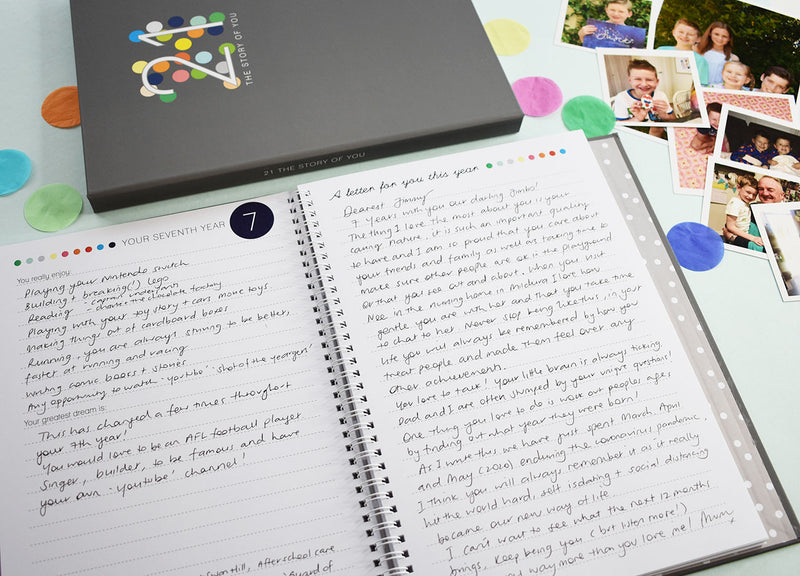 21
THE STORY OF YOU
21 THE STORY OF YOU
YOUR SEVENTH YEAR
7
You really enjoy:
Playing your nintendo switch
Building + breaking(!) lego
Reading - captain underpants
- charlie + the chocolate factory
Playing with your toy story + cars movie toys
Making things out of cardboard boxes
Running, you are always striving to be better,
faster at running and racing
writing comic books + stories
Any opportunity to watch 'youtube' - 'shot of the yeargen'
Your greatest dream is:
This has changed a few times throughout
your 7th year!
You would love to be an AFL football player
Singer, builder, to be famous and have
your own 'youtube' channel!
Hill, After school care
of
A letter for you this year
Dearest Jimmy
7 Years with you our darling Jimbo!
The thing I love the most about you is your
caring nature, it is such an important quality
to have and I am so proud that you care about
your friends and family as well as taking time to
make sure other people are ok in the playground
or that you see out and about. When you visit
Nee in the nursing home in Mildura I love how
gentle you are with her and that you take time
to chat to her. Never stop being like this, in your
life you will always be remembered by how you
treat people and made them feel over any
other achievements.
You love to talk! Your little brain is always ticking.
Dad and I are often stumped by your unique questions!
One thing you love to do is work out peoples ages,
by finding out what year they were born!
As I write this we have just spent March, April
and May (2020) enduring the coronavirus pandemic,
I think you will always remember it as it really
hit the world hard, self isolating + social distancing
became our new way of life.
I can't wait to see what the next 12 months
brings, keep being you (but listen more!)
way more than you love me! Mum
x